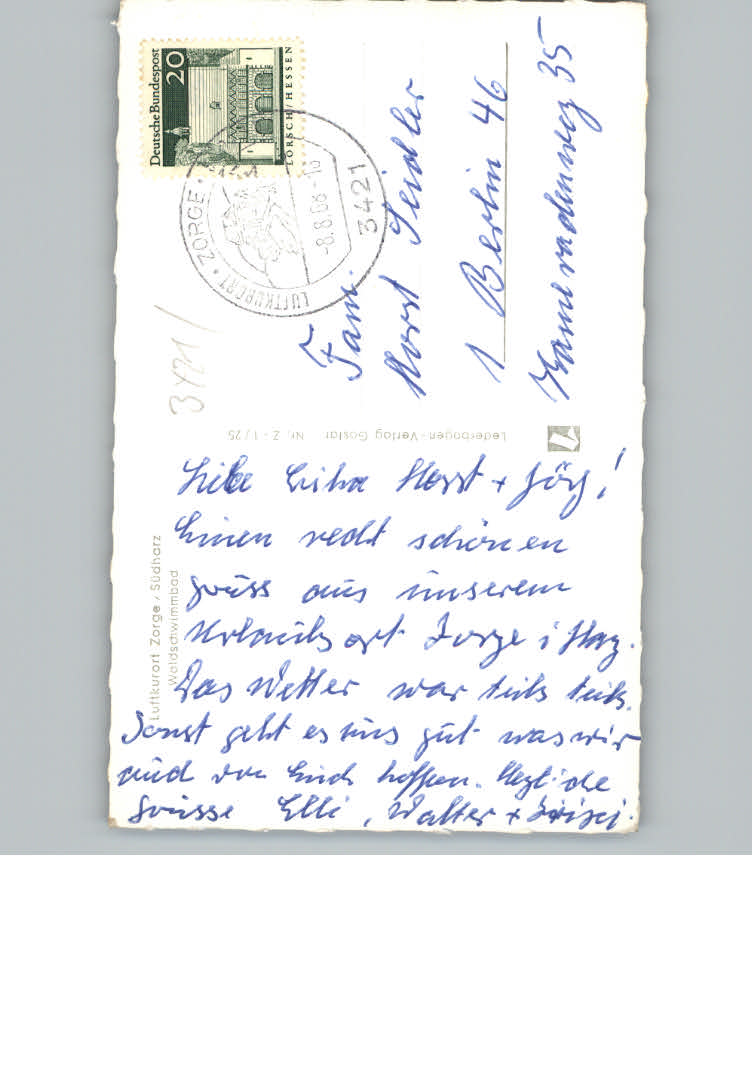 Liebe Erika Horst + Jörg!
Einen recht schönen
Gruss aus unserem
Urlaubsort Zorge i Harz.
Das Wetter war teils teils.
Sonst geht es uns gut was wir
auch von Euch hoffen. Herzliche
Grüsse Elli, Walter +
Fam.
Horst Seidler
1 Berlin 46
Kameradenweg 35
Deutsche Bundespost
20
LORSCH/HESSEN
LUFTKURORT • ZORGE •
-8.8.68-16
3421
3421/
Lederbogen-Verlag Goslar Nr. Z-1/25
Luftkurort Zorge / Südharz
Waldschwimmbad